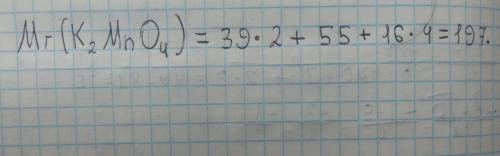 Mr(K₂MnO₄) = 39·2 + 55 + 16·4 = 197.